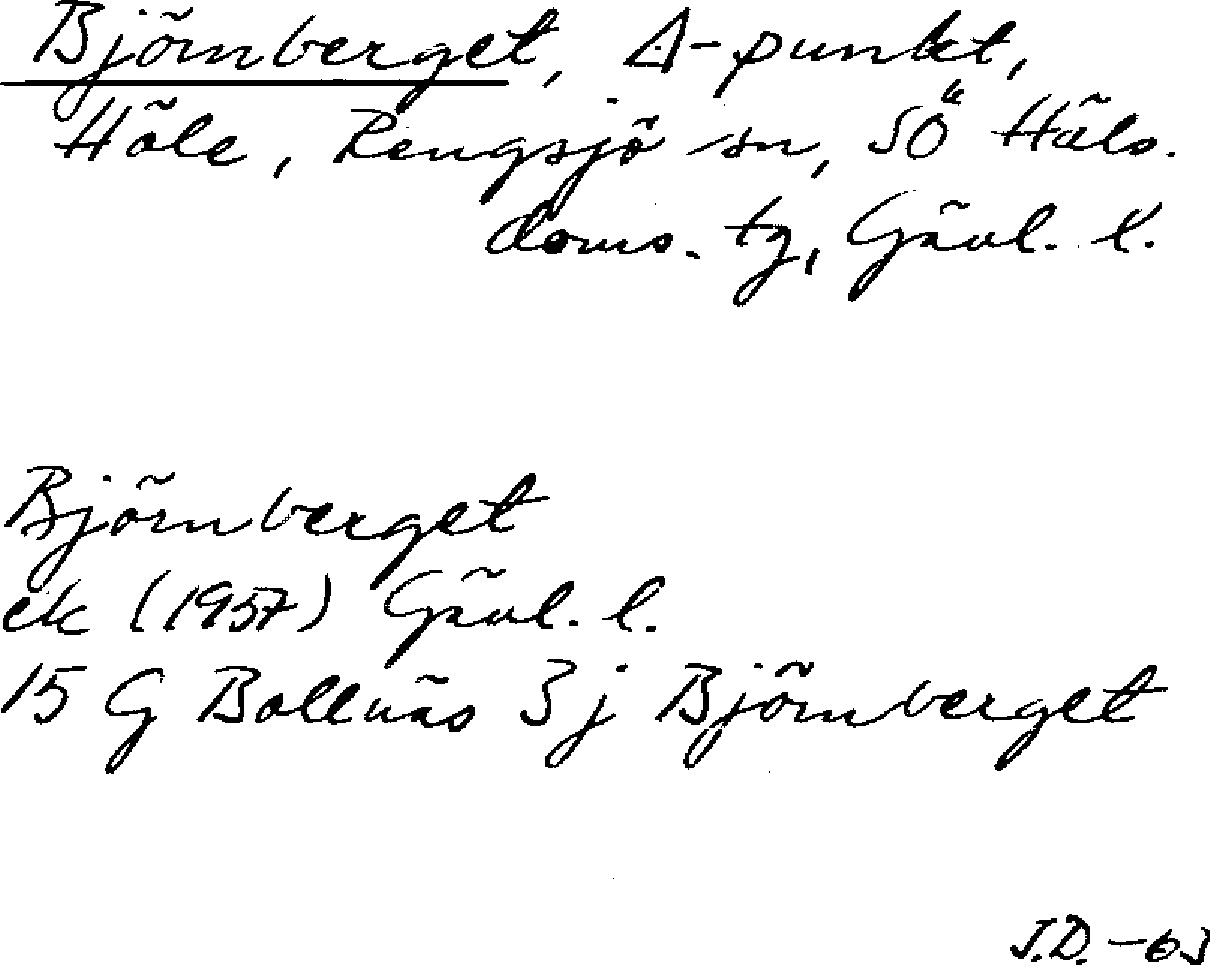 Björnberget, Δ-punkt,
Höle, Rengsjö sn, SÖ Häls.
doms. tg, Gävl. l.
Björnberget
ek (1957) Gävl. l.
15 G Bollnäs 3 j Björnberget
J.D. -63